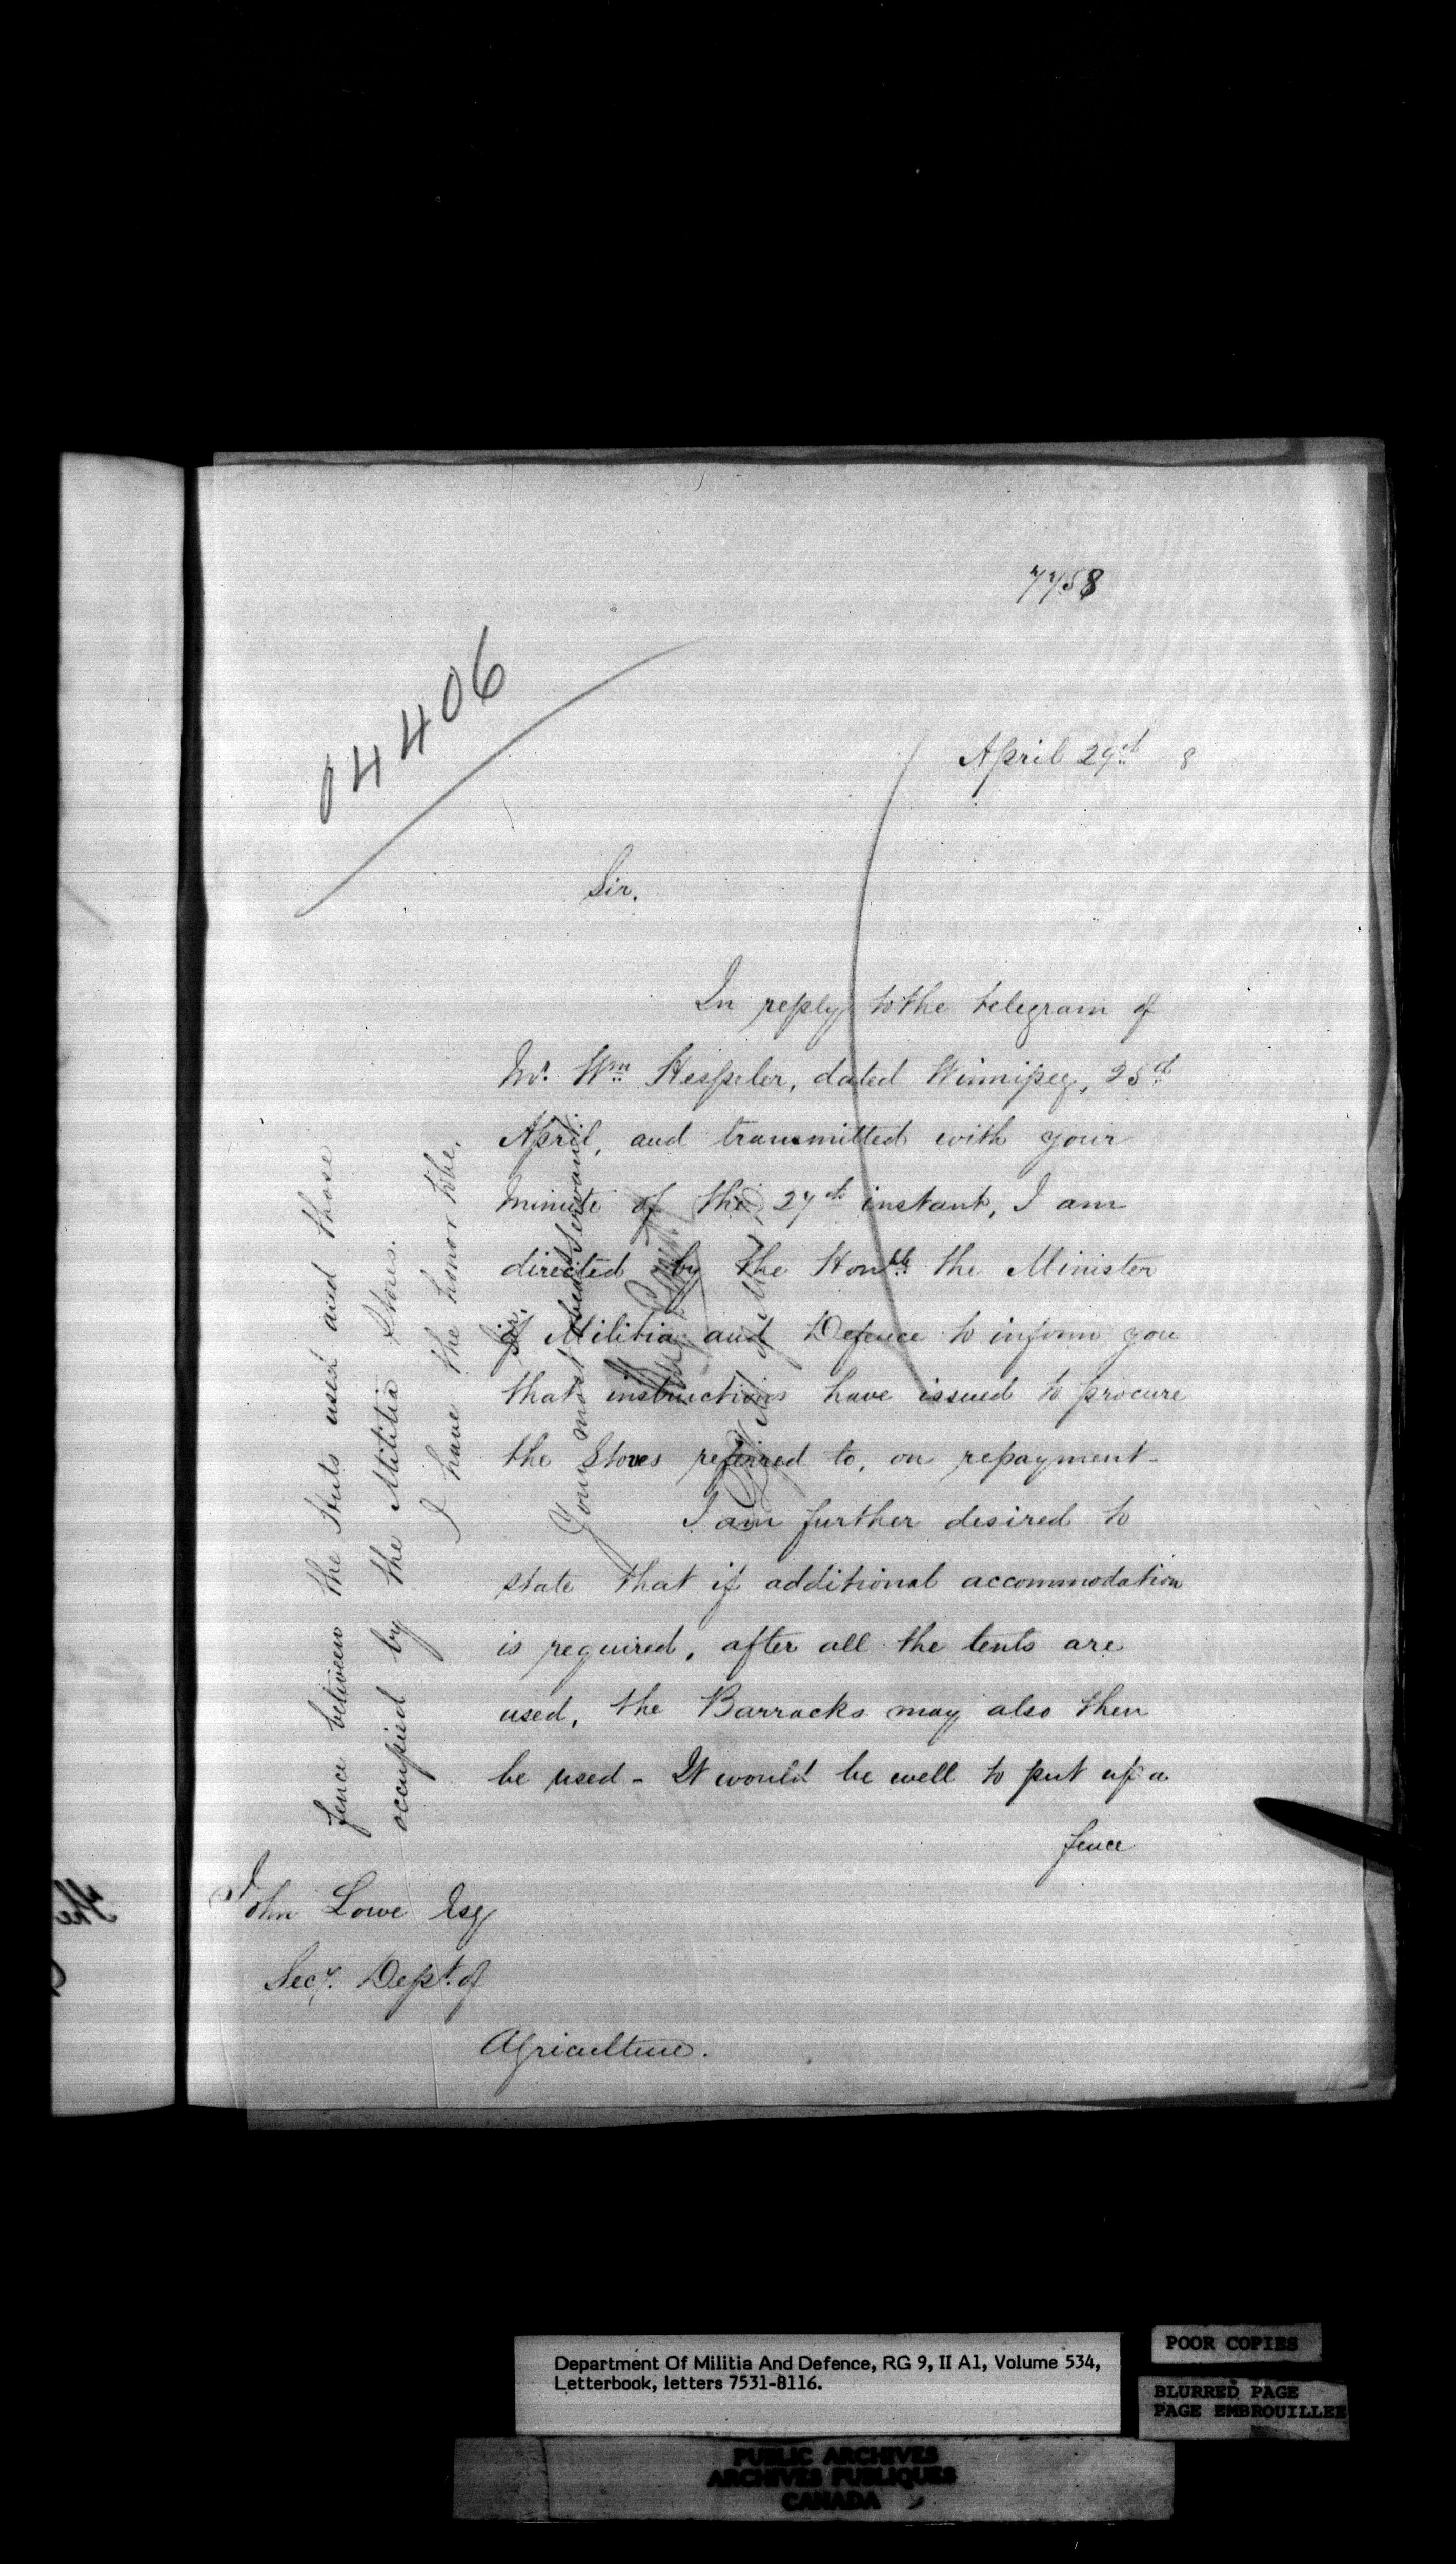 7758
04406
April 29th 8
Sir.
In reply to the telegram of
Mr. Wm Hespeler, dated Winnipeg, 25th
April, and transmitted with your
minute of the 27th instant, I am
directed by the Honble the Minister
of Militia and Defence to inform you
that instructions have issued to procure
the Stoves referred to, on repayment-
I am further desired to
state that if additional accommodation
is required, after all the tents are
used, the Barracks may also then
be used - It would be well to put up a
fence
fence between the Huts used and those
occupied by the Militia Stores.
I have the honor to be,
Sir.
Your most obedt Servant
John Lowe Esq
Secy. Dept. of
Agriculture.
the
Department Of Militia And Defence, RG 9, II A1, Volume 534,
Letterbook, letters 7531-8116.
POOR COPIES
BLURRED PAGE
PAGE EMBROUILLEE
PUBLIC ARCHIVES
ARCHIVES PUBLIQUES
CANADA